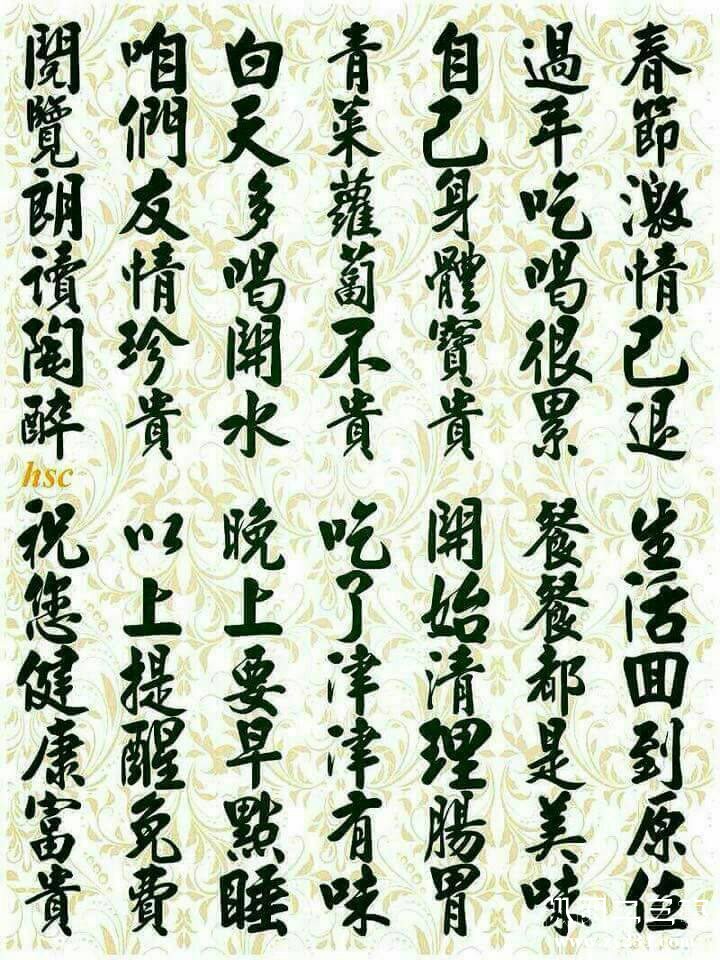 春節激情已退
生活回到原位
過年吃喝很累
餐餐都是美味
自己身體寶貴
開始清理腸胃
青菜蘿蔔不貴
吃了津津有味
白天多喝開水
晚上要早點睡
咱們友情珍貴
以上提醒免費
閱覽朗讀陶醉
祝您健康富貴
hsc